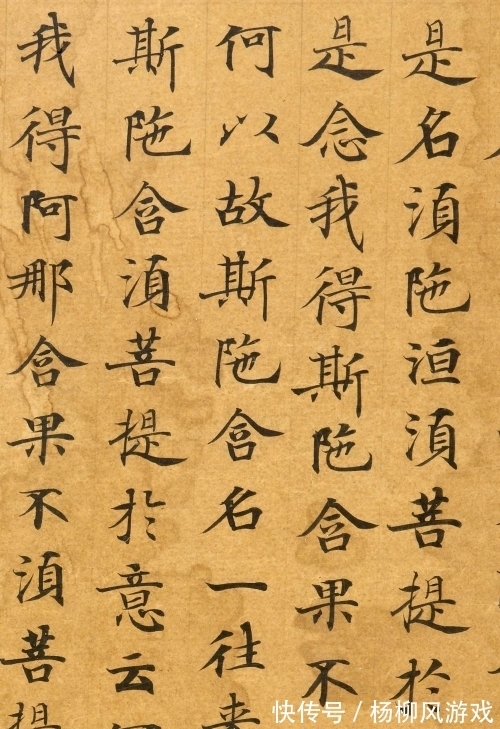 是名湏陁洹湏菩提扵
是念我得斯陁含果不
何以故斯陁含名一往来
斯陁含湏菩提扵意云
我得阿那含果不湏菩提
快传号／杨柳风游戏